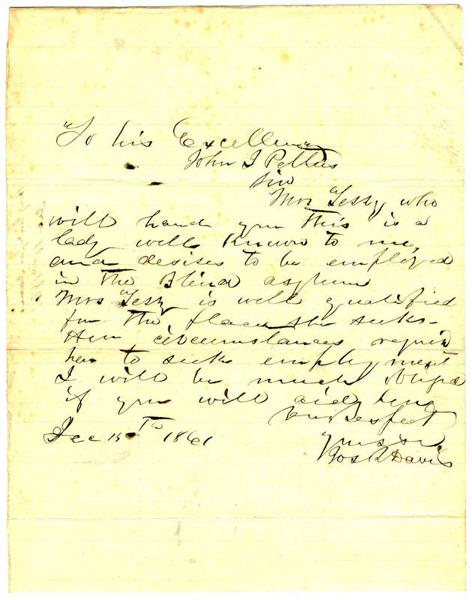 To his Excellency
John J Pettus
Sir
Mrs Terry who
will hand you this is a
lady well known to me,
and desires to be employed
in the Blind asylum
Mrs Terry is well qualified
for the place she seeks-
Her circumstances require
her to seek employment
I will be much obliged
if you will aid her
Respect
yours &c
Dec 15th 1861
Jos R Davis